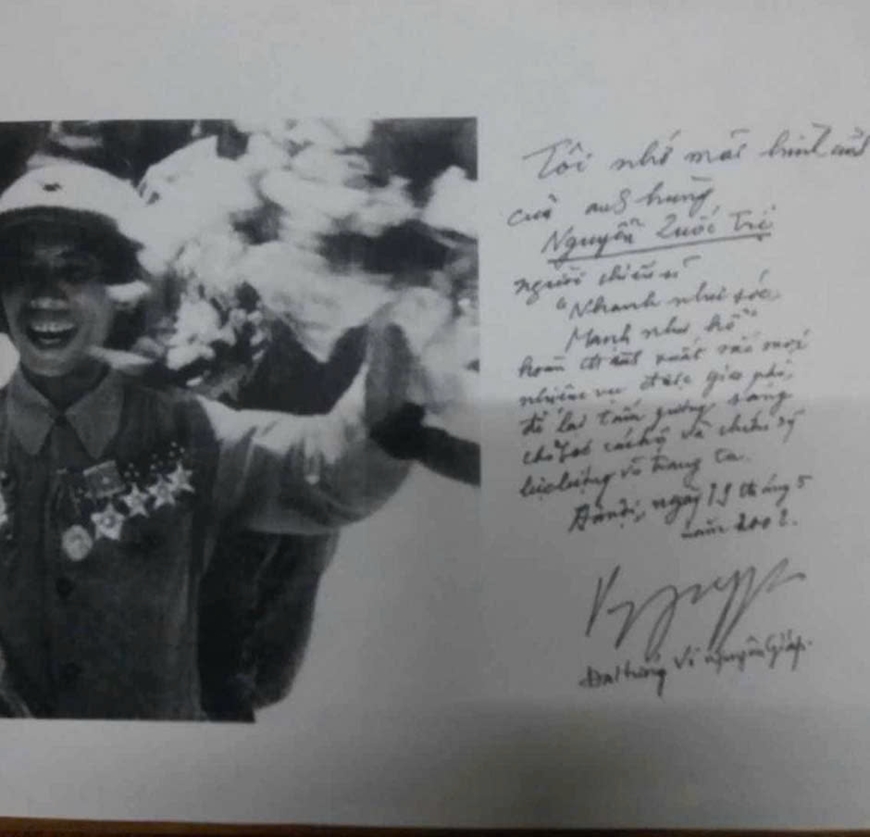 Tôi nhớ mãi hình ảnh
của anh hùng
Nguyễn Quốc Trị
người chiến sĩ
"Nhanh như sóc,
Mạnh như hổ"
hoàn thành xuất sắc mọi
nhiệm vụ được giao phó,
để lại tấm gương sáng
cho cán bộ và chiến sỹ
lực lượng vũ trang ta.
Hà Nội, ngày 19 tháng 5
năm 2002.
Đại tướng Võ Nguyên Giáp.